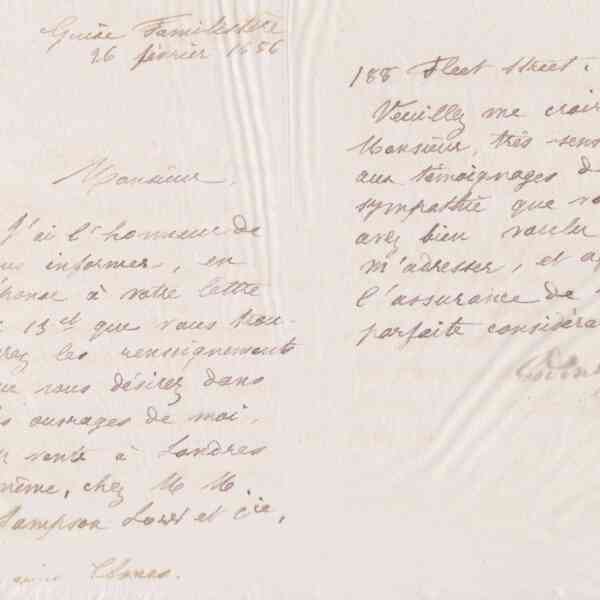 Guise Familistère
26 février 1886
Monsieur,
J'ai l'honneur de
ous informer, en
éponse à votre lettre
13 ct que vous trou-
erez les renseignements
ue vous désirez dans
s ouvrages de moi,
en vente à Londres
même, chez M M.
Sampson Low et Cie,
188 Fleet Street.
Veuillez me croir
Monsieur, très-sens
aux témoignages de
sympathie que vo
avez bien voulu
m'adresser, et a
l'assurance de
parfaite considéra